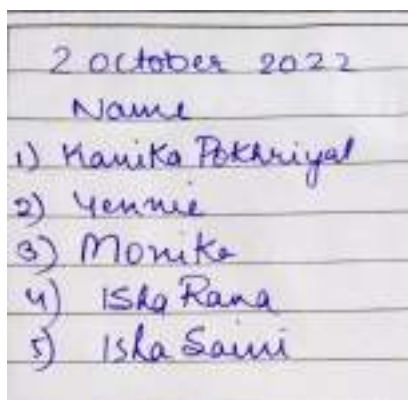 2 October 2022
Name
1) Kanika Pokhriyal
2) Yennie
3) Monika
4) Isha Rana
5) Isha Saini